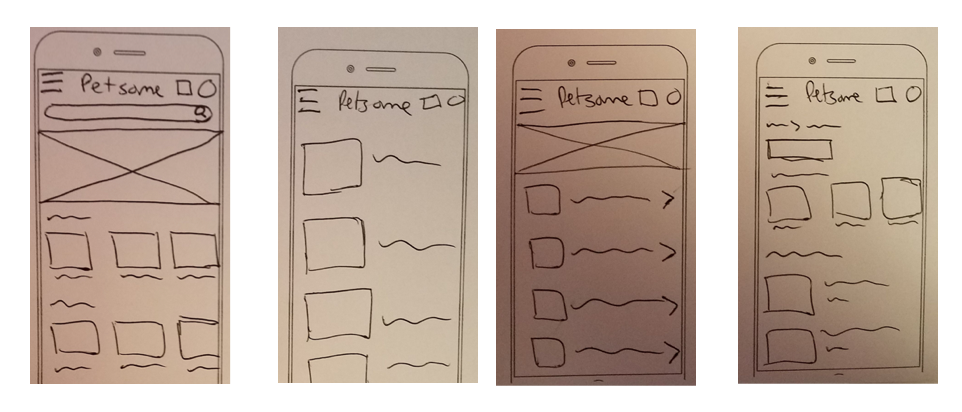 Petsome
Petsome
Petsome
Petsome